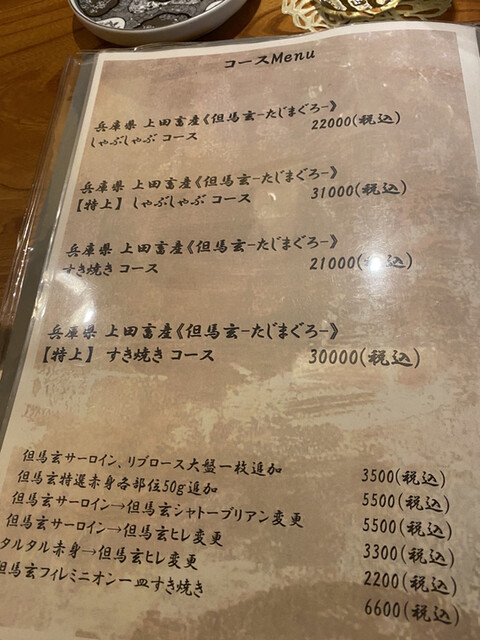 コースMenu
兵庫県 上田畜産《但馬玄-たじまぐろ-》
しゃぶしゃぶ コース 22000(税込)
兵庫県 上田畜産《但馬玄-たじまぐろ-》
【特上】 しゃぶしゃぶ コース 31000(税込)
兵庫県 上田畜産《但馬玄-たじまぐろ-》
すき焼き コース 21000(税込)
兵庫県 上田畜産《但馬玄-たじまぐろ-》
【特上】 すき焼き コース 30000(税込)
但馬玄サーロイン、リブロース大盤一枚追加 3500(税込)
但馬玄特選赤身各部位50g追加 5500(税込)
但馬玄サーロイン→但馬玄シャトーブリアン変更 5500(税込)
但馬玄サーロイン→但馬玄ヒレ変更 3300(税込)
タルタル赤身→但馬玄ヒレ変更 2200(税込)
但馬玄フィレミニオン一皿すき焼き 6600(税込)